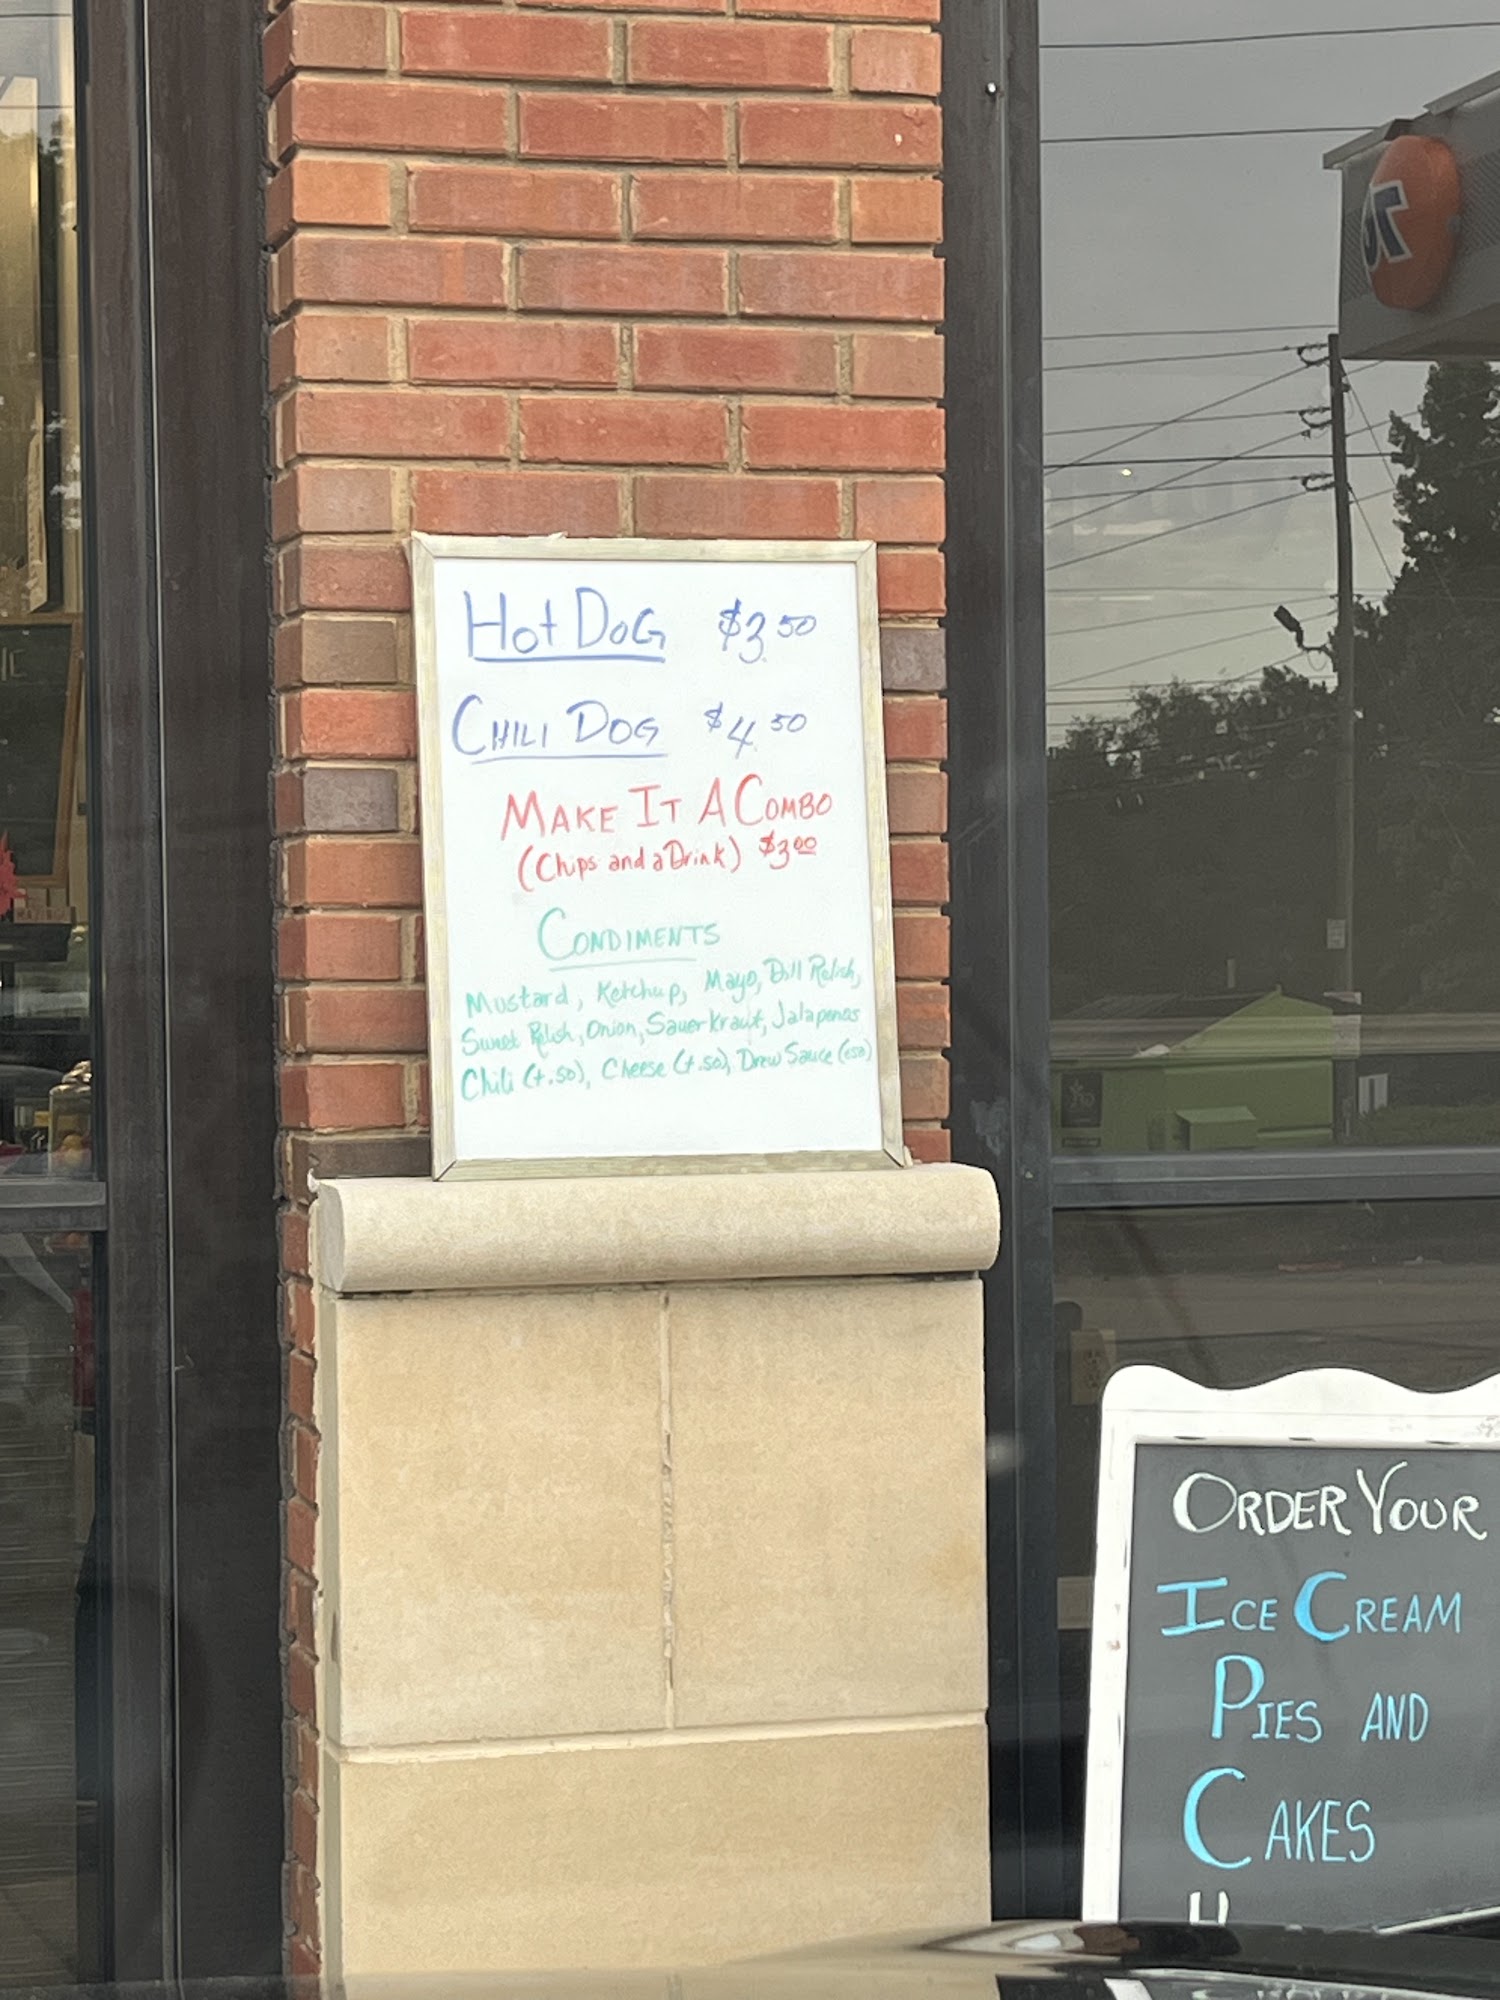 Hot Dog $3.50
Chili Dog $4.50
Make It A Combo
(Chips and a Drink) $3.00
Condiments
Mustard, Ketchup, Mayo, Dill Relish,
Sweet Relish, Onion, Sauerkraut, Jalapenos
Chili (+.50), Cheese (+.50), Drew Sauce
Order Your
Ice Cream
Pies and
Cakes